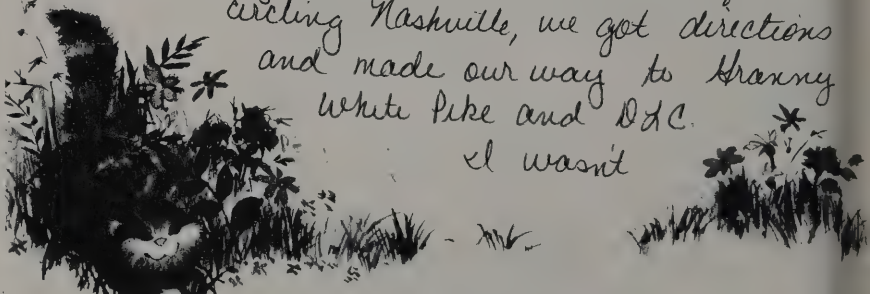 circling Nashville, we got directions
and made our way to Granny
White Pike and DLC.
I wasn't